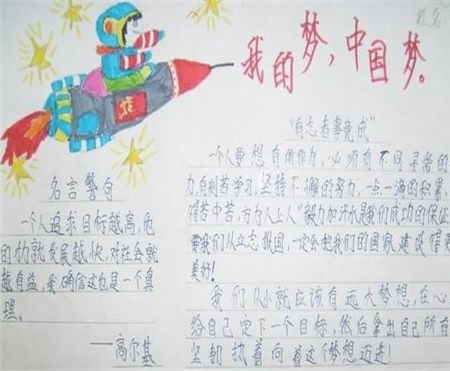 我的梦，中国梦。
"有志者事竟成"
一个人要想有所作为，必须有不同寻常的
力，有刻苦学习，坚持不懈的努力，一点一滴的积累，
得苦中苦，方为人上人"毅力加汗水是我们成功的保证
我们从立志报国，一定会把我们的国家建设得更
美好！
我们从小就应该有远大梦想，在心
给自己定下一个目标，然后拿出自己所有
坚韧执着向着这个梦想迈进！
名言警句
一个人追求目标越高，他
的力就发展越快，对社会就
越有益，我确信这也是一个真
理。
——高尔基